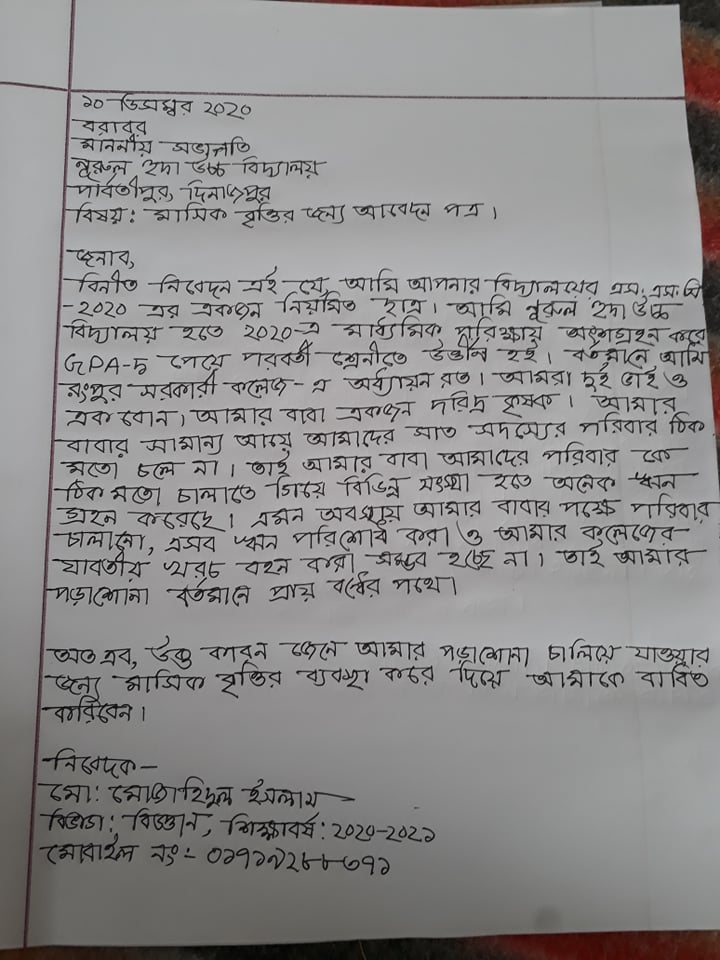 ১০ ডিসেম্বর ২০২০
বরাবর
মাননীয় সভাপতি
নুরুল হুদা উচ্চ বিদ্যালয়
পার্বতীপুর, দিনাজপুর
বিষয়: মাসিক বৃত্তির জন্য আবেদন পত্র।
জনাব,
বিনীত নিবেদন এই যে, আমি আপনার বিদ্যালয়ের এস.এস.সি
-২০২০ এর একজন নিয়মিত ছাত্র। আমি নুরুল হুদা উচ্চ
বিদ্যালয় হতে ২০২০-এ মাধ্যমিক পরিক্ষায় অংশগ্রহন করে
GPA-৫ পেয়ে পরবর্তী শ্রেনীতে উত্তীর্ন হই। বর্তমানে আমি
রংপুর সরকারী কলেজ-এ অধ্যায়ন রত। আমরা দুই ভাই ও
এক বোন, আমার বাবা একজন দরিদ্র কৃষক। আমার
বাবার সামান্য আয়ে আমাদের সাত সদস্যের পরিবার ঠিক
মতো চলে না। তাই আমার বাবা আমাদের পরিবার কে
ঠিক মতো চালাতে গিয়ে বিভিন্ন সংস্থা হতে অনেক ঋন
গ্রহন করেছে। এমন অবস্থায় আমার বাবার পক্ষে পরিবার
চালানো, এসব ঋন পরিশোধ করা ও আমার কলেজের
যাবতীয় খরচ বহন করা সম্ভব হচ্ছে না। তাই আমার
পড়াশোনা বর্তমানে প্রায় বন্ধের পথে।
অত এব, উক্ত কারন জেনে আমার পড়াশোনা চালিয়ে যাওয়ার
জন্যে মাসিক বৃত্তির ব্যবস্থা করে দিয়ে আমাকে বাধিত
করিবেন।
নিবেদক—
মো: মোজাহিদুল ইসলাম
বিভাগ: বিজ্ঞান, শিক্ষাবর্ষ: ২০২০-২০২১
মোবাইল নং:-